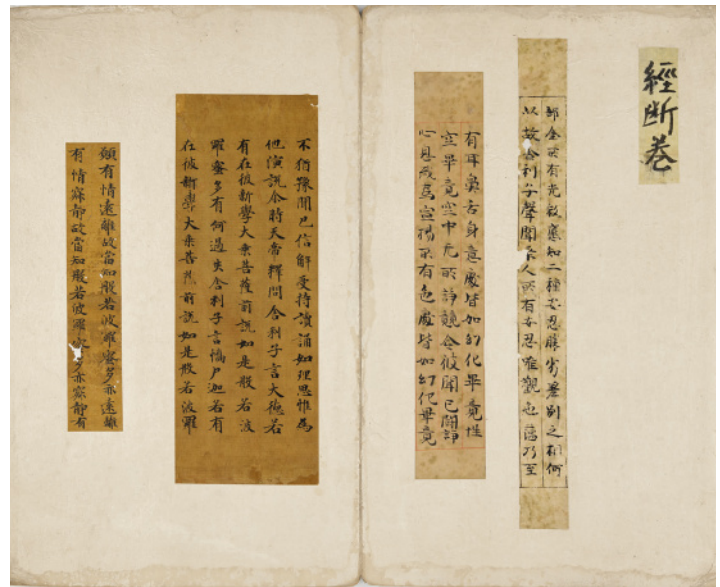 經断巻
應知二種安忍勝劣差別之相何
以故舍利子聲聞人所有安忍唯觀色蘊乃至
有耳鼻舌身意處皆如幻化畢竟性
空畢竟空中无所諍競令彼聞已鬪諍
心息或爲宣揚所有色處皆如幻化畢竟
不猶豫聞已信解受持讀誦如理思惟為
他演說尒時天帝釋問舍利子言大德若
有在彼新學大乘菩薩前說如是般若波
羅蜜多有何過失舍利子言憍尸迦若有
在彼新學大乘菩薩前說如是般若波羅
有情遠離故當知般若波羅蜜多亦遠離
有情寂靜故當知般若波羅蜜多亦寂靜有